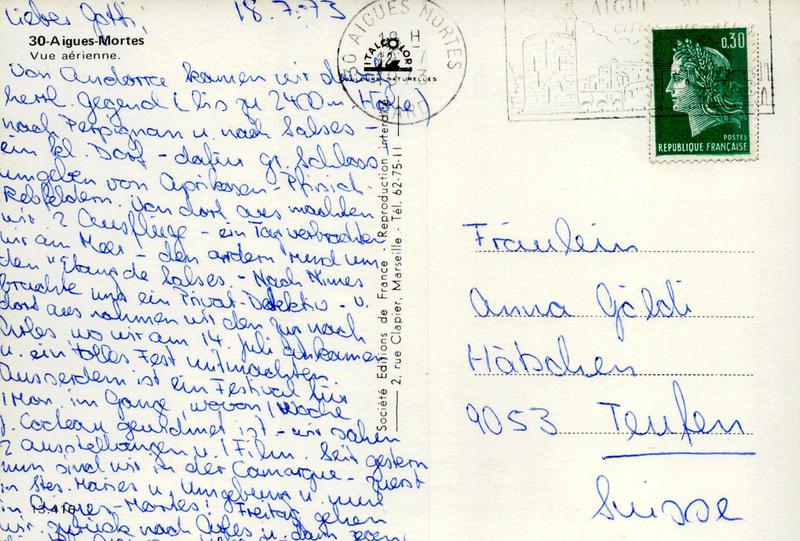 Lieber Götti,
18.7.73
30-Aigues-Mortes
Vue aérienne.
Von Andorra kamen wir durch
herrl. Gegend (bis zu 2400 m Höhe)
nach Perpignan u. nach Salses -
ein kl. Dorf - dafür gr. Schloss
umgeben von Aprikosen - Pfirsich-
Rebfeldern. Von dort aus machten
wir 2 Ausflüge - ein Tag verbrachten
wir am Meer - den andern rund um
den "Etang de Salses. - Nach Nimes
brachte uns ein Privat-Detektiv - u.
dort aus nahmen wir den Zug nach
Arles wo wir am 14. Juli ankamen
u. ein tolles Fest mitmachten.
Ausserdem ist ein Festival für
1 Mon. im Gange, wovon 1 Woche
J. Cocteau gewidmet ist - wir sahen
2 Ausstellungen u. 1 Film. Seit gestern
nun sind wir in der Camargue - zuerst
in Stes. Maries u. Umgebung u. nun
in Aigues-Mortes. Freitag gehen
13.410
wir zurück nach Arles u. dann
Société Editions de France - Reproduction interdite
2, rue Clapier, Marseille - Tél. 62-75-11
ITALCOLOR
COULEURS NATURELLES
30 AIGUES MORTES
18 H
GARD
0,30
POSTES
REPUBLIQUE FRANÇAISE
Fräulein
Anna Göldi
Hätschen
9053 Teufen
Suisse